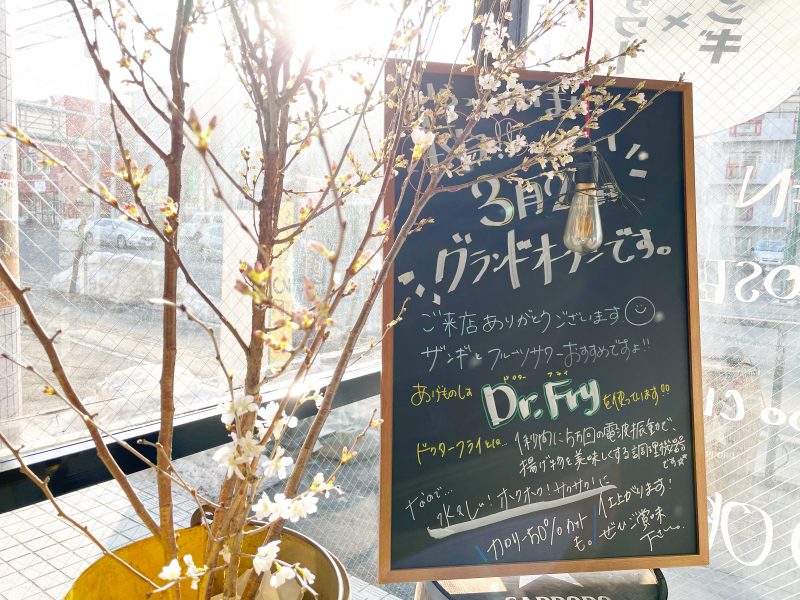 ンギ
×
サワー
3月2
グランドオープンです。
ご来店ありがとうございます
ザンギとフルーツサワーおすすめですよ!!
ドクター フライ
あげものしは Dr.Fry を使っています!!
ドクターフライとは… 1秒間に5万回の電波振動で、
揚げ物を美味しくする調理機器
です
なので…
水々しい!ホクホク!サクサク!に
仕上がります!
カロリー50%カット
も。
ぜひご賞味
下さい〜。
SAPPORO
EN
OSE